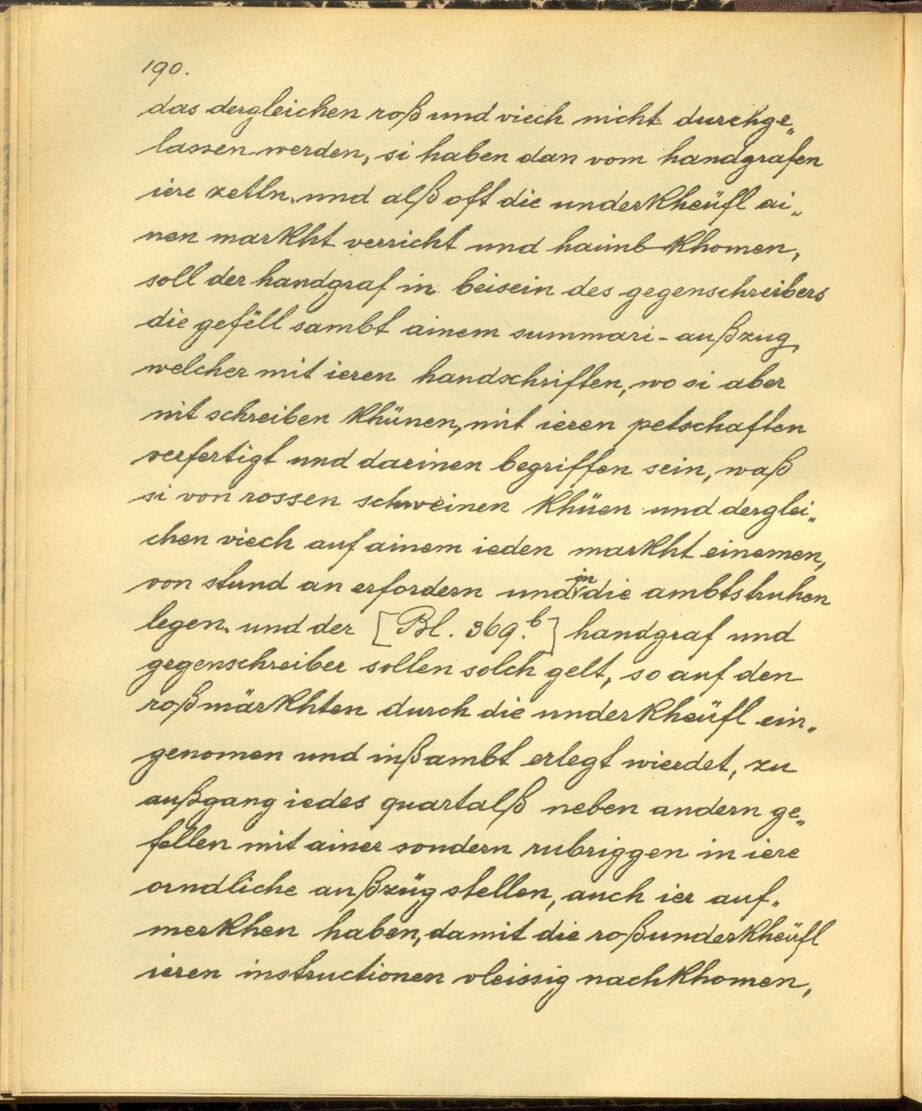 190.
das dergleichen roß und viech nicht durchge„
lassen werden, si haben dan vom handgrafen
iere zetln, und alß oft die underkheüfl ai„
nen markht verricht und haimb khomen,
soll der handgraf in beisein des gegenschreibers
die gefëll sambt ainem summari-außzug,
welcher mit ieren handschriften, wo si aber
nit schreiben khünen, mit ieren petschaften
verfertigt und darinen begriffen sein, waß
si von rossen schweinen khüen und derglei„
chen viech auf ainem ieden markht einemen,
von stund an erfordern und in die ambtstruhen
legen. und der [Bl. 369.b] handgraf und
gegenschreiber sollen solch gelt, so auf den
roßmärkhten durch die underkheüfl ein„
genomen und inß ambt erlegt wierdet, zu
außgang iedes quartalß neben andern ge„
fellen mit ainer sondern rubriggen in iere
orndliche außzüg stellen, auch ier auf„
merkhen haben, damit die roßunderkheüfl
ieren instructionen vleissig nachkhomen,